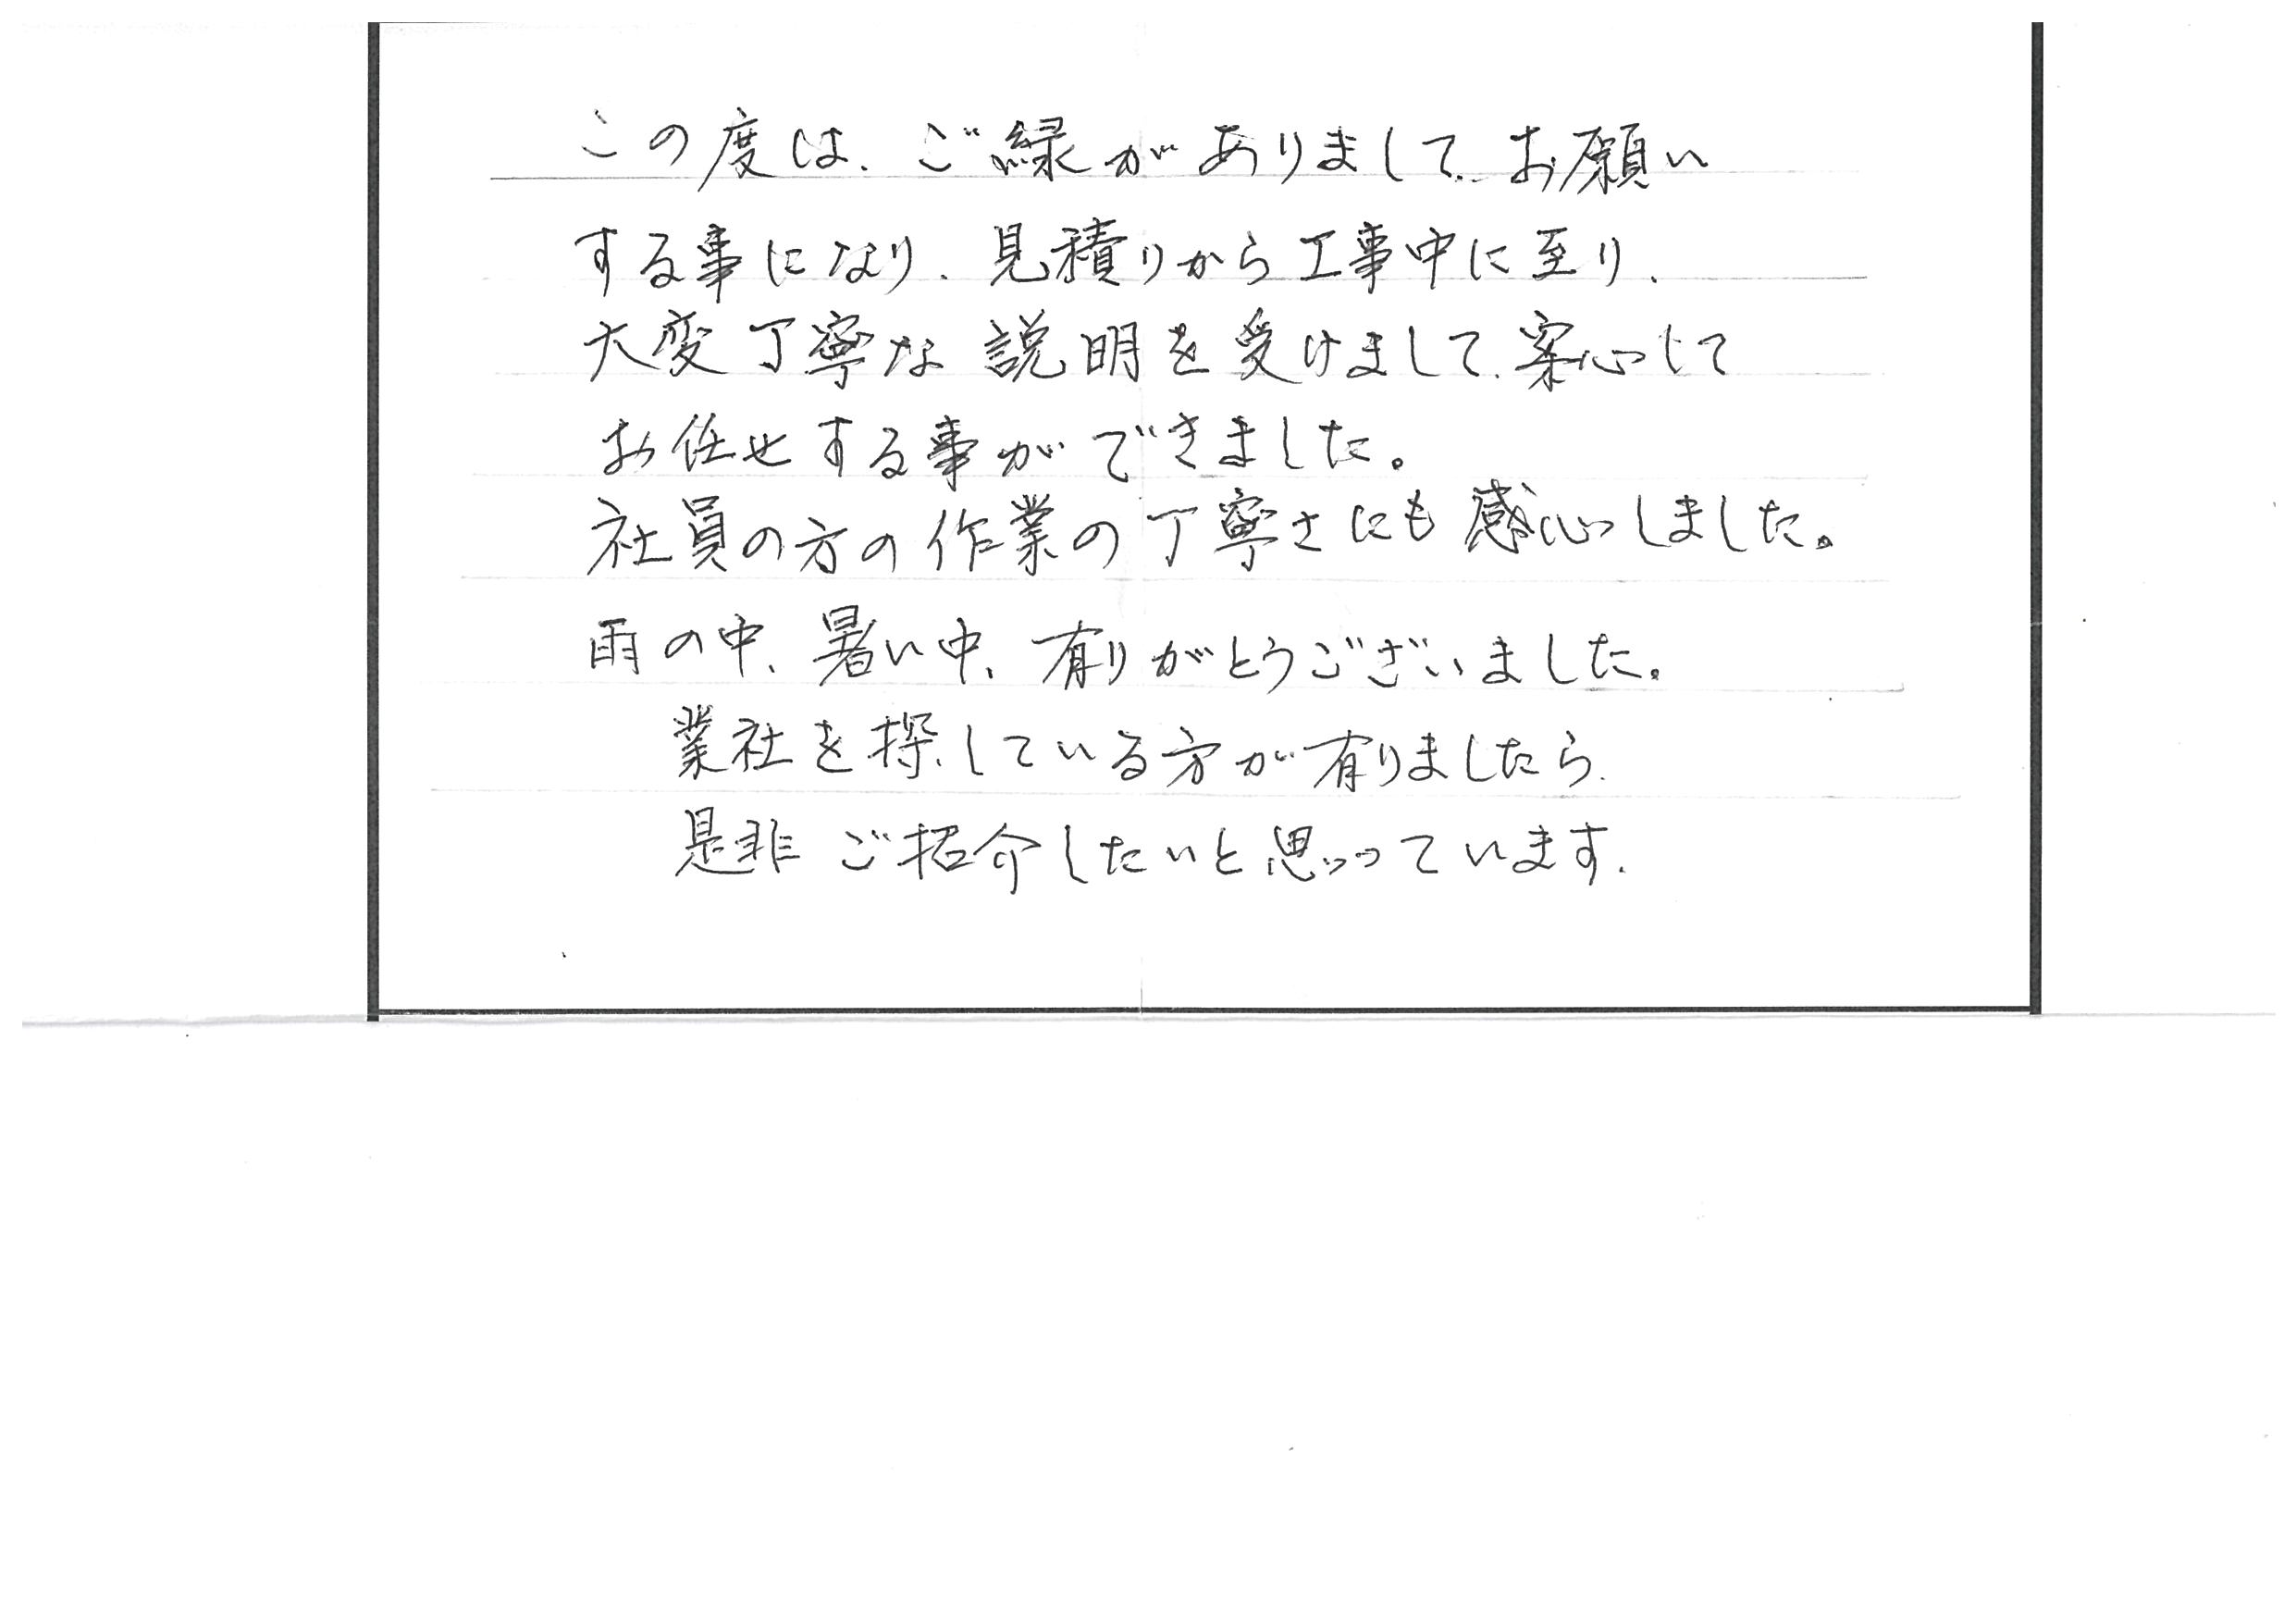 この度は、ご縁がありまして、お願い
する事になり、見積りから工事中に至り、
大変丁寧な説明を受けまして、案心して
お任せする事ができました。
社員の方の作業の丁寧さにも感心しました。
雨の中、暑い中、有りがとうございました。
業社を探している方が有りましたら、
是非ご招介したいと思っています。